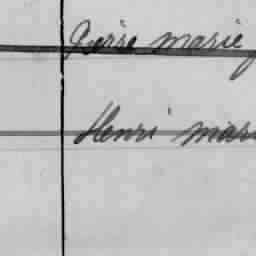 Pierre marie
Henri mari